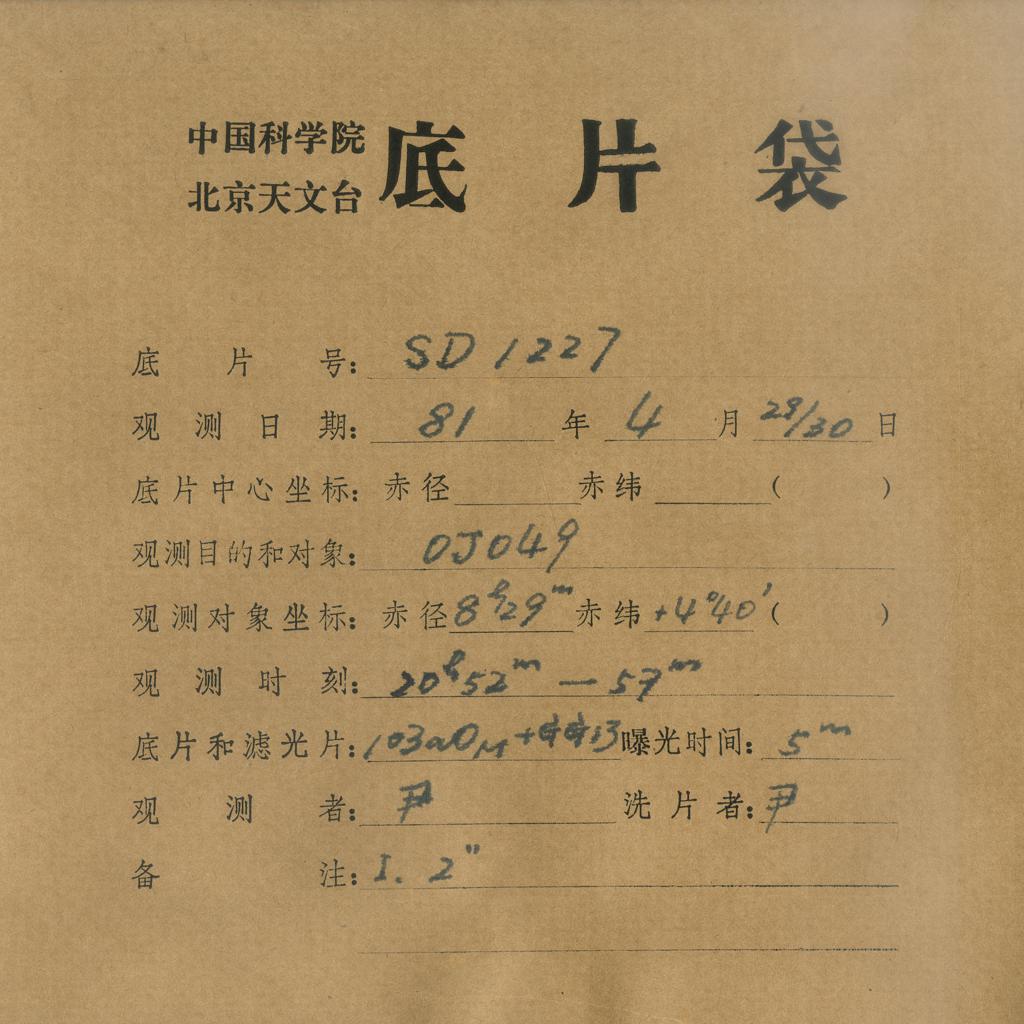 中国科学院
北京天文台
底片袋
底片号：SD 1227
观测日期：81年4月29/30日
底片中心坐标：赤径 赤纬 ( )
观测目的和对象：OJ049
观测对象坐标：赤径8h29m赤纬+4°40′( )
观测时刻：20h52m—57m
底片和滤光片：103aO 曝光时间：5m
观测者：尹 洗片者：尹
备注：I. 2"